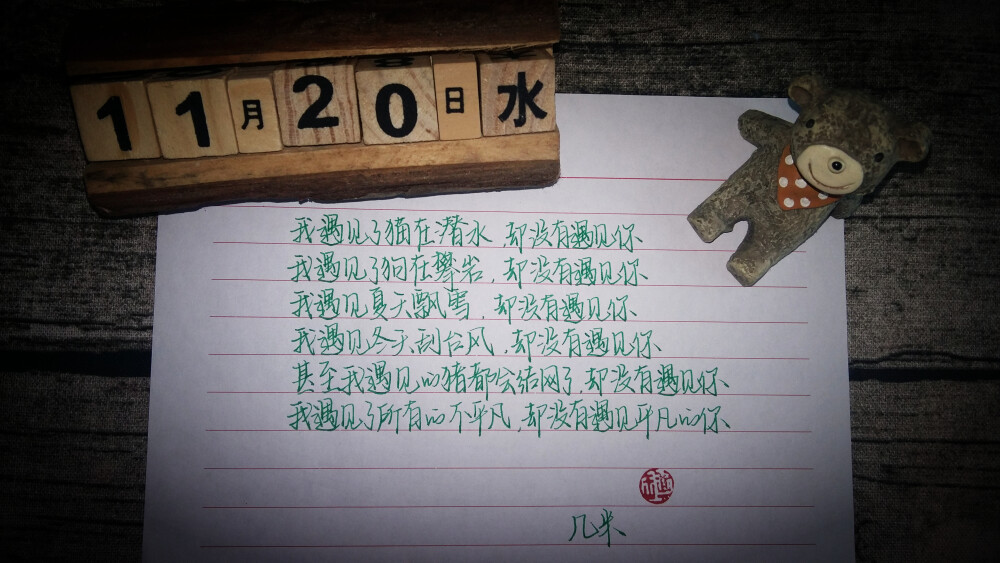 11月20日 水
我遇见了猫在潜水,却没有遇见你
我遇见了狗在攀岩,却没有遇见你
我遇见夏天飘雪,却没有遇见你
我遇见冬天刮台风,却没有遇见你
甚至我遇见的猪都会结网了,却没有遇见你
我遇见了所有的不平凡,却没有遇见平凡的你
几米